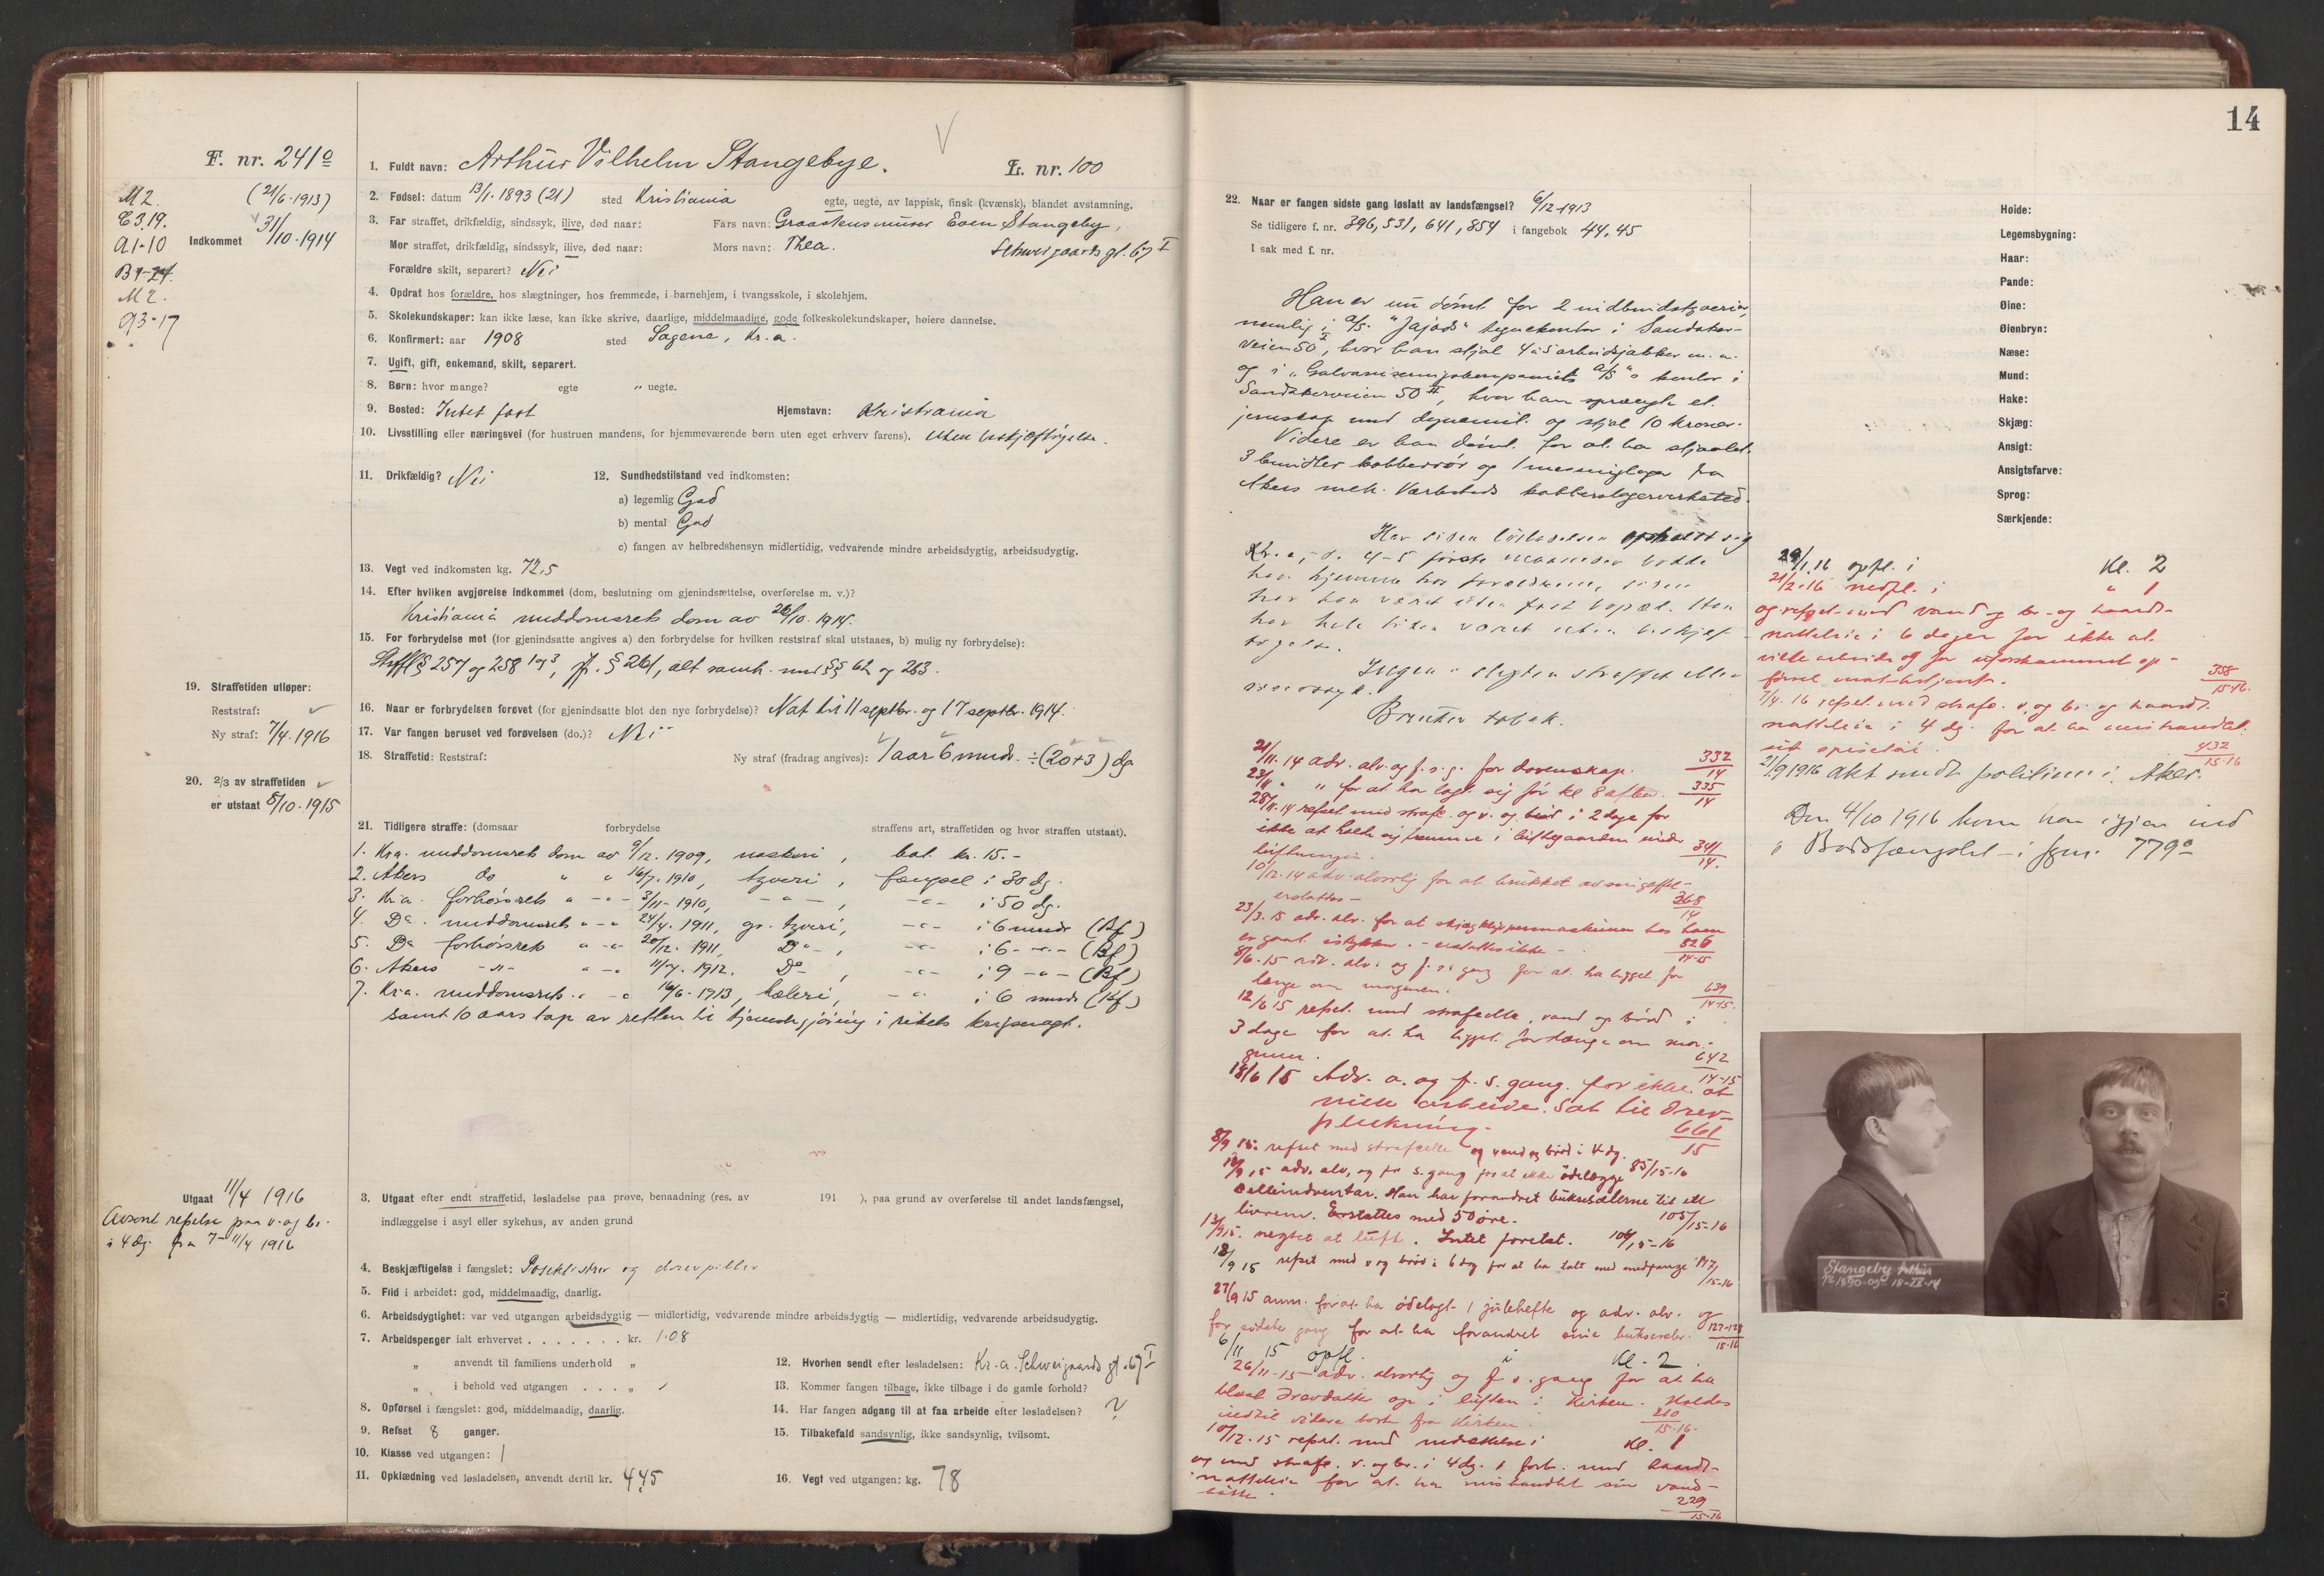 14
F. nr. 241º
(21/6·1913)
M 2.
C 3.19.
A1-10
Indkommet 31/10·1914
M 2.
1. Fuldt navn: Arthur Vilhelm Stangebye.
L. nr. 100
2. Fødsel: datum 13/1·1893 (21) sted Kristiania egte, uegte, av lappisk, finsk (kvænsk), blandet avstamning.
3. Far straffet, drikfældig, sindssyk, ilive, død naar: Fars navn: Graastensmurer Even Stangeby,
Mor straffet, drikfældig, sindssyk, ilive, død naar: Mors navn: Thea. Schweigaards gt. 67 I
Forældre skilt, separert? Nei
4. Opdrat hos forældre, hos slægtninger, hos fremmede, i barnehjem, i tvangsskole, i skolehjem.
5. Skolekundskaper: kan ikke læse, kan ikke skrive, daarlige, middelmaadige, gode folkeskolekundskaper, høiere dannelse.
6. Konfirmert: aar 1908 sted Sagene, Kr.a.
7. Ugift, gift, enkemand, skilt, separert.
8. Børn: hvor mange? egte „ uegte.
9. Bosted: Intet fast Hjemstavn: Kristiania
10. Livsstilling eller næringsvei (for hustruen mandens, for hjemmeværende børn uten eget erhverv farens). Uten beskjæftigelse.
11. Drikfældig? Nei 12. Sundhedstilstand ved indkomsten:
a) legemlig God
b) mental God
c) fangen av helbredshensyn midlertidig, vedvarende mindre arbeidsdygtig, arbeidsudygtig.
13. Vegt ved indkomsten kg. 72,5
14. Efter hvilken avgjørelse indkommet (dom, beslutning om gjenindsættelse, overførelse m. v.)?
Kristiania meddomsrets dom av 26/10·1914.
15. For forbrydelse mot (for gjenindsatte angives a) den forbrydelse for hvilken reststraf skal utstaaes, b) mulig ny forbrydelse):
Strfl §§ 257 og 258 1 og 3, jf. § 261, alt samh. med §§ 62 og 263.
16. Naar er forbrydelsen forøvet (for gjenindsatte blot den nye forbrydelse)? Nat til 11 septbr. og 17 septbr. 1914.
17. Var fangen beruset ved forøvelsen (do.)? Nei
18. Straffetid: Reststraf: Ny straf (fradrag angives): 1 aar 6 mndr. ÷ (20+3) dg.
19. Straffetiden utløper:
Reststraf:
Ny straf: 7/4·1916
20. 2/3 av straffetiden
er utstaat 8/10·1915
21. Tidligere straffe: (domsaar forbrydelse straffens art, straffetiden og hvor straffen utstaat).
1. Kr.a. meddomsrets dom av 9/12·1909, naskeri, bot kr. 15.-
2. Akers do " " 16/7·1910, tyveri, fængsel i 30 dg.
3. Kr.a. forhørsrets " -"- 3/11-1910, -"-, -"- i 50 dg.
4. Do. meddomsrets "-" 24/4·1911, gr. tyveri, -"- i 6 mndr (Bf.)
5. Do forhørsrets "-" 20/12·1911, Do -, -"- i 6 -"- (Bf.)
6. Akers -"- "-" 11/7·1912. Do, -"- i 9 -"- (Bf.)
7. Kr.a. meddomsrets "-" 16/6·1913, hæleri, -"- i 6 mndr (Bf.)
samt 10 aars tap av retten til tjenestgjøring i rikets krigsmagt.
Utgaat 11/4 1916
Avsont refselse paa v. og br.
i 4 dg. fra 7-11/4 1916
3. Utgaat efter endt straffetid, løsladelse paa prøve, benaadning (res. av 191 ), paa grund av overførelse til andet landsfængsel,
indlæggelse i asyl eller sykehus, av anden grund
4. Beskjæftigelse i fængslet: Poseklistrer og drevpiller
5. Flid i arbeidet: god, middelmaadig, daarlig.
6. Arbeidsdygtighet: var ved utgangen arbeidsdygtig — midlertidig, vedvarende mindre arbeidsdygtig — midlertidig, vedvarende arbeidsudygtig.
7. Arbeidspenger ialt erhvervet . . . . . . . kr. 1.08
„ anvendt til familiens underhold „
„ i behold ved utgangen . . . „
8. Opførsel i fængslet: god, middelmaadig, daarlig.
9. Refset 8 ganger.
10. Klasse ved utgangen: 1
11. Opklædning ved løsladelsen, anvendt dertil kr. 4,45
12. Hvorhen sendt efter løsladelsen: Kr.a. Schweigaards gt. 67 I
13. Kommer fangen tilbage, ikke tilbage i de gamle forhold?
14. Har fangen adgang til at faa arbeide efter løsladelsen? ?
15. Tilbakefald sandsynlig, ikke sandsynlig, tvilsomt.
16. Vegt ved utgangen: kg. 78
22. Naar er fangen sidste gang løslatt av landsfængsel? 6/12-1913
Se tidligere f. nr. 396, 531, 641, 854 i fangebok 44, 45
I sak med f. nr.
Han er nu dømt for 2 indbrudstyverier,
nemlig i a/s. "Jajods" tegnekontor i Sandaker-
veien 50 I, hvor han stjal 4 à 5 arbeidsjakker m. m.
og i "Galvaniseringskompaniets a/s"s kontor i
Sandakerveien 50 II, hvor han sprængte et
jernskap med dynamit og stjal 10 kroner.
Videre er han dømt for at ha stjaalet
3 bundter kobberrør og 1 messinglager fra
Akers mek. Værksteds kobberslagerverksted.
Har siden løsladelsen opholdt sig
Kr.a., de 4-5 første maaneder bodde
han hjemme hos forældrene, siden
har han været uten fast bopæl. Han
har hele tiden været uten beskjæf-
tigelse.
Ingen i slegten straffet eller
sindssyk.
Bruker tobak.
21/11·14 adv. alv. og f. s. g. for dovenskap. 332/14
23/11 " " for at ha lagt sig før kl 8 aften. 335/14
28/11·14 refset med strafc. og v. og brød i 2 dage for
ikke at holde sig fremme i luftegaarden under 341/14.
luftningen.
10/12·14 adv. alvorlig for at brukket av en gaffel-
erstattes - 368/14
23/3·15 adv. alv. for at skjægklippermaskinen hos ham
er gaat istykker. - erstattes ikke - 526/14-15
8/6·15 adv. alv. og f. s. gang for at ha ligget for
længe om morgenen. 639/14-15.
12/6 15 refset med strafcelle, vand og brød i
3 dage for at ha ligget for længe om mor-
genen. 642/14-15
18/6 15 Adv. a. og f. s. gang. for ikke at
ville arbeide. Sat til drev-
plukning. 661/15
8/9 15. refset med strafcelle og vand og brød i 4 dg. 85/15-16
adv. alv. og for s. gang for at ikke ødelægge
celleinventar. Han har forandret bukseselerne til ett
livrem. Erstattes med 50 øre. 105/15-16
13/9 15. negtet at lufte. Intet foretat. 106/15-16
18/9 15 refset med v og brød i 6 dag for at ha talt med medfange 117/15-16
27/9 15 anm. for at ha ødelagt 1 julehefte og adv. alv. og
for sidste gang for at ha forandret sine bukseseler. 127-128/15-16
6/11 15 opfl. i Kl. 2.
26/11-15 - adv. alvorlig og f. s. gang for at ha
blaat drevdotter op i luften i kirken. Holdes
indtil videre borte fra kirken. 210/15-16.
10/12·15 refset med nedsettelse i Kl. 1
og med strafc. v. og br. i 4 dg. i forb. med haardt
natteleie for at ha mishandlet sin vand-
bøtte. 229/15-16
Høide:
Legemsbygning:
Haar:
Pande:
Øine:
Øienbryn:
Næse:
Mund:
Hake:
Skjæg:
Ansigt:
Ansigtsfarve:
Sprog:
Særkjende:
29/1.16 opfl. i Kl. 2
21/2·16 nedfl. i " 1
og refset med vand og br. og haardt-
natteleie i 6 dager for ikke at
ville arbeide og for uforskammet op-
førsel mot betjent. 358/15-16.
7/4. 16 refset med strafc. v. og br. og haardt
natteleie i 4 dg. for at ha mishandlet
sit spisetøi. 432/15-16
21/9 1916 akt sendt politiet i Aker.
Den 4/10 1916 kom han igjen ind
i Bodsfængslet - i fgnr. 779º
Stangeby Arthur